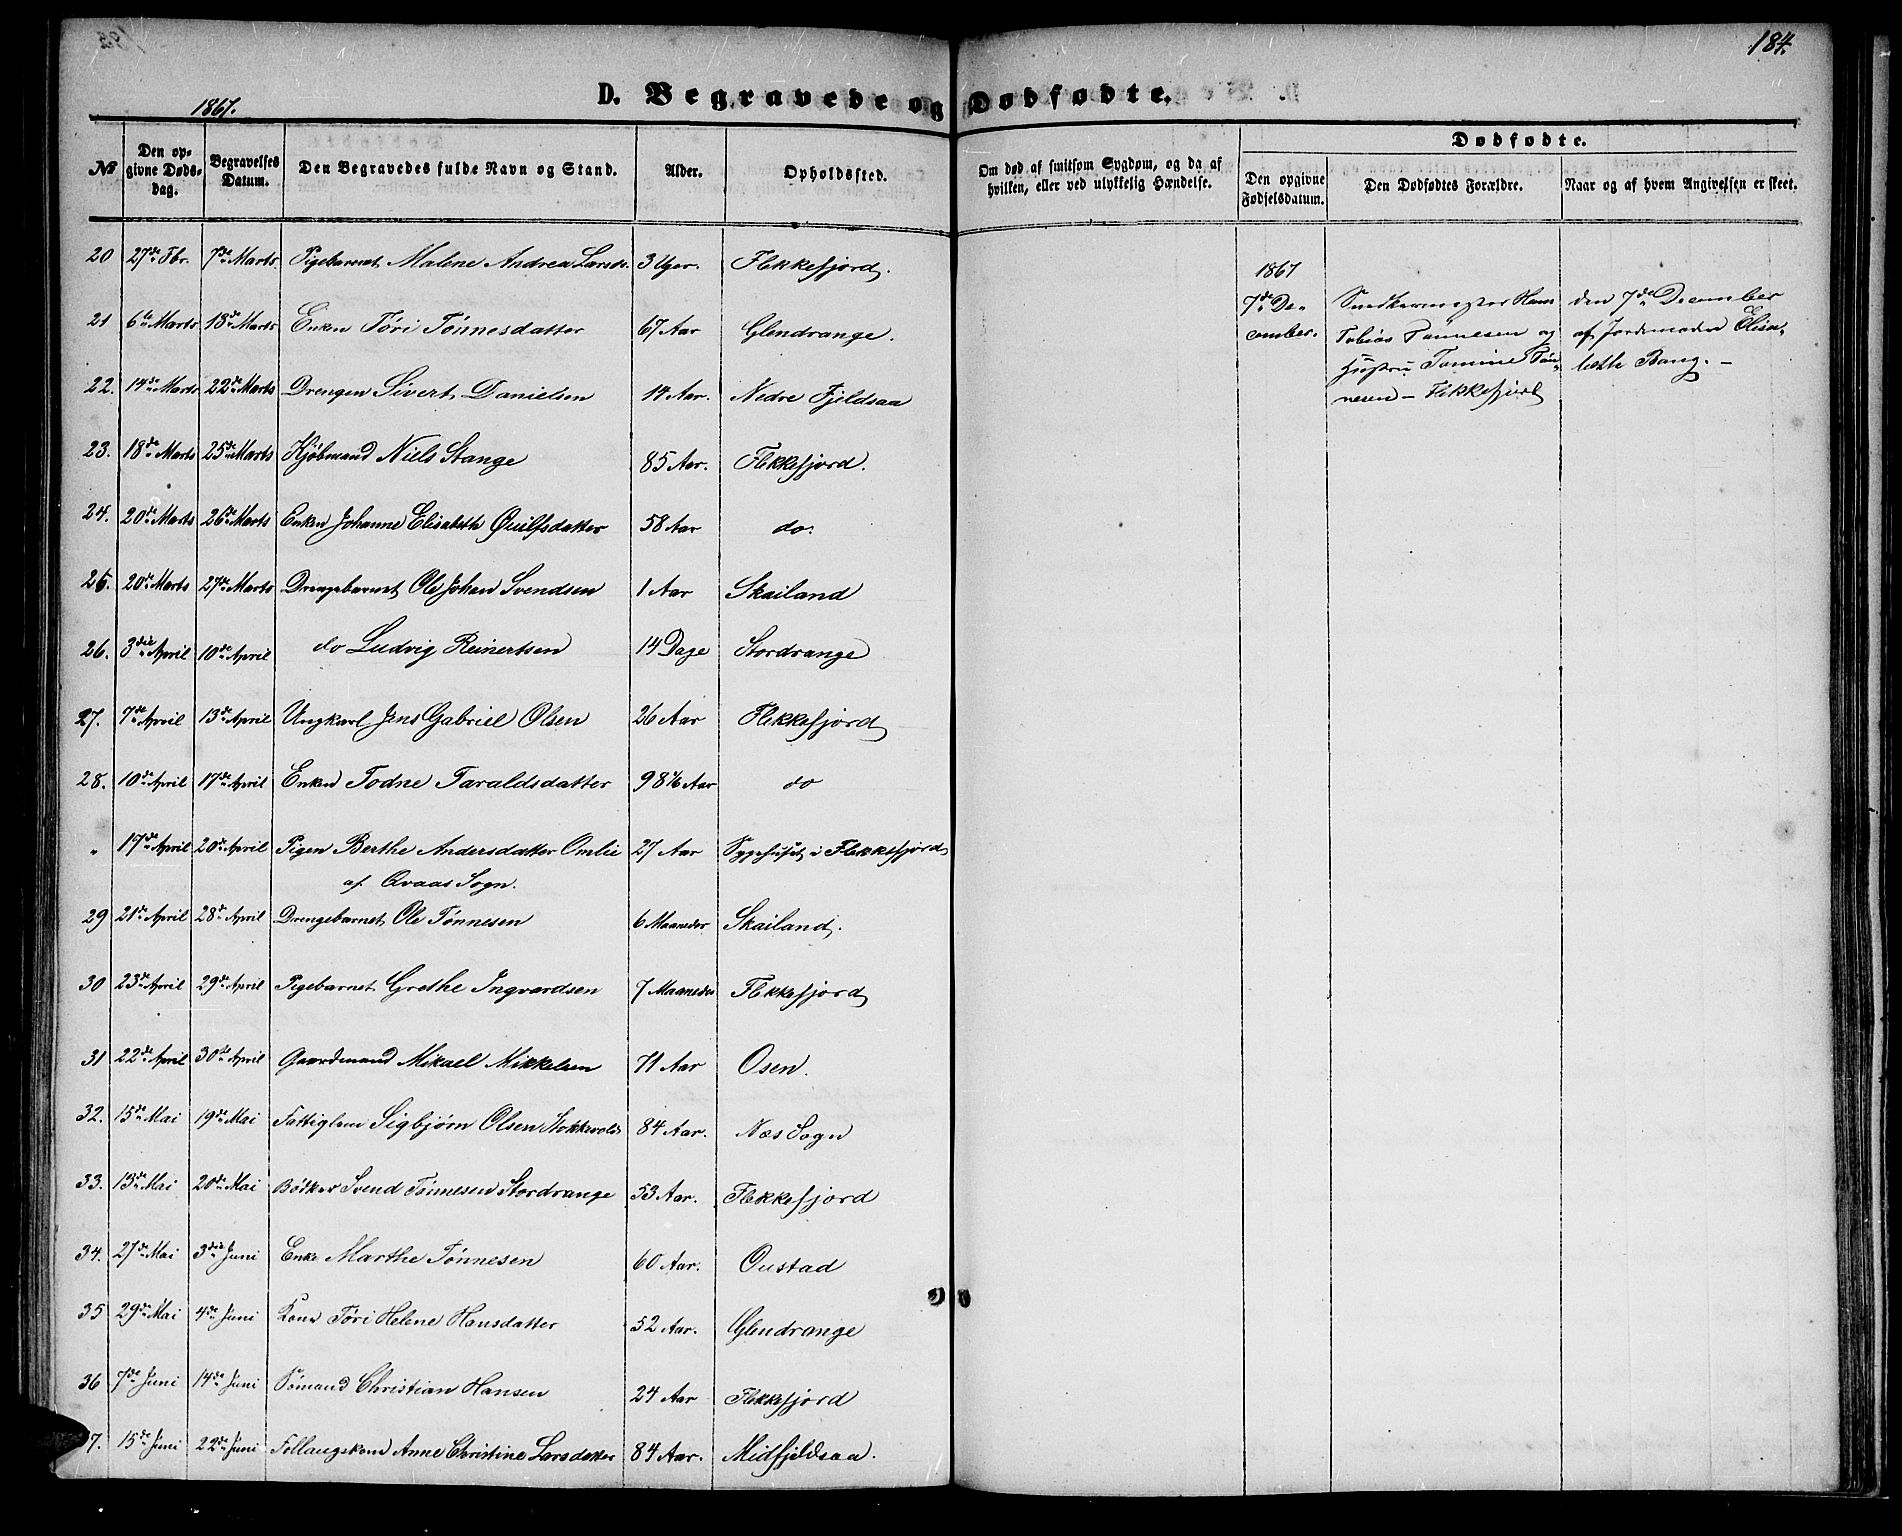 184.
1867.
D. Begravede og Dødfødte.
№
Den opgivne Dødsdag.
Begravelses Datum.
Den Begravedes fulde Navn og Stand.
Alder.
Opholdsted.
Om død af smitsom Sygdom, og da af hvilken, eller ved ulykkelig Hændelse.
Dødfødte.
Den opgivne Fødselsdatum.
Den Dødfødtes Forældre.
Naar og af hvem Angivelsen er skeet.
20 27de Fbr. 7de Marts Pigebarnet Malene Andrea Larsdr. 3 Uger. Flekkefjord.
21 6te Marts 18de Marts Enken Tóri Tónnesdatter 67 Aar Glendrange.
22. 14de Marts 22de Marts Drengen Sivert Danielsen 14 Aar. Nedre Fjeldsaa
23. 18de Marts 25de Marts Kjøbmand Niels Stange 85 Aar. Flekkefjord.
24. 20de Marts 26de Marts Enken Johanne Elisabeth Øuilfsdatter 58 Aar do.
25. 20de Marts 27de Marts Drengebarnet Ole Johan Svendsen 1 Aar Skailand
26. 3die April 10de April do Ludvig Reinertsen 14 Dage Stordrange
27. 7de April 13de April Ungkarl Jens Gabriel Olsen 26 Aar Flekkefjord
28. 10de April 17de April Enken Todne Taraldsdatter 98 1/6 Aar do
" 17de April 20de April Pigen Berthe Andersdatter Omlie 27 Aar Sygehuset i Flekkefjord
af Qvaas Sogn.
29 21de April 28de April Drengebarnet Ole Tónnesen 6 Maaneder Skailand.
30 23de April 29de April Pigebarnet Grethe Ingvardsen 7 Maaneder Flekkefjord
31 22de April 30te April Gaardmand Mikael Mikkelsen 71 Aar Osen.
32. 15de Mai 19de Mai Fattiglem Sigbjørn Olsen Stokkvold 84 Aar. Næs Sogn
33. 13de Mai 20de Mai Bódker Svend Tónnesen Stordrange 53 Aar. Flekkefjord
34. 27de Mai 3die Juni Enke Marthe Tónnesen 60 Aar. Oustad
35 29de Mai 4de Juni Kone Tóri Helene Hansdatter 52 Aar. Glendrange
36 7de Juni 14de Juni Sómand Christian Hansen 24 Aar Flekkefjord
7. 15de Juni 22de Juni Follaugskone Anne Christine Larsdatter 84 Aar. Midfjeldsaa.
1867
7de De-
cember.
Snedkermester Hans
Tobias Tónnesen og
Hustru Tomine Tón-
nesen - Flekkefjord
den 7de December
af Jordemoder Elisa-
beth Bang. -